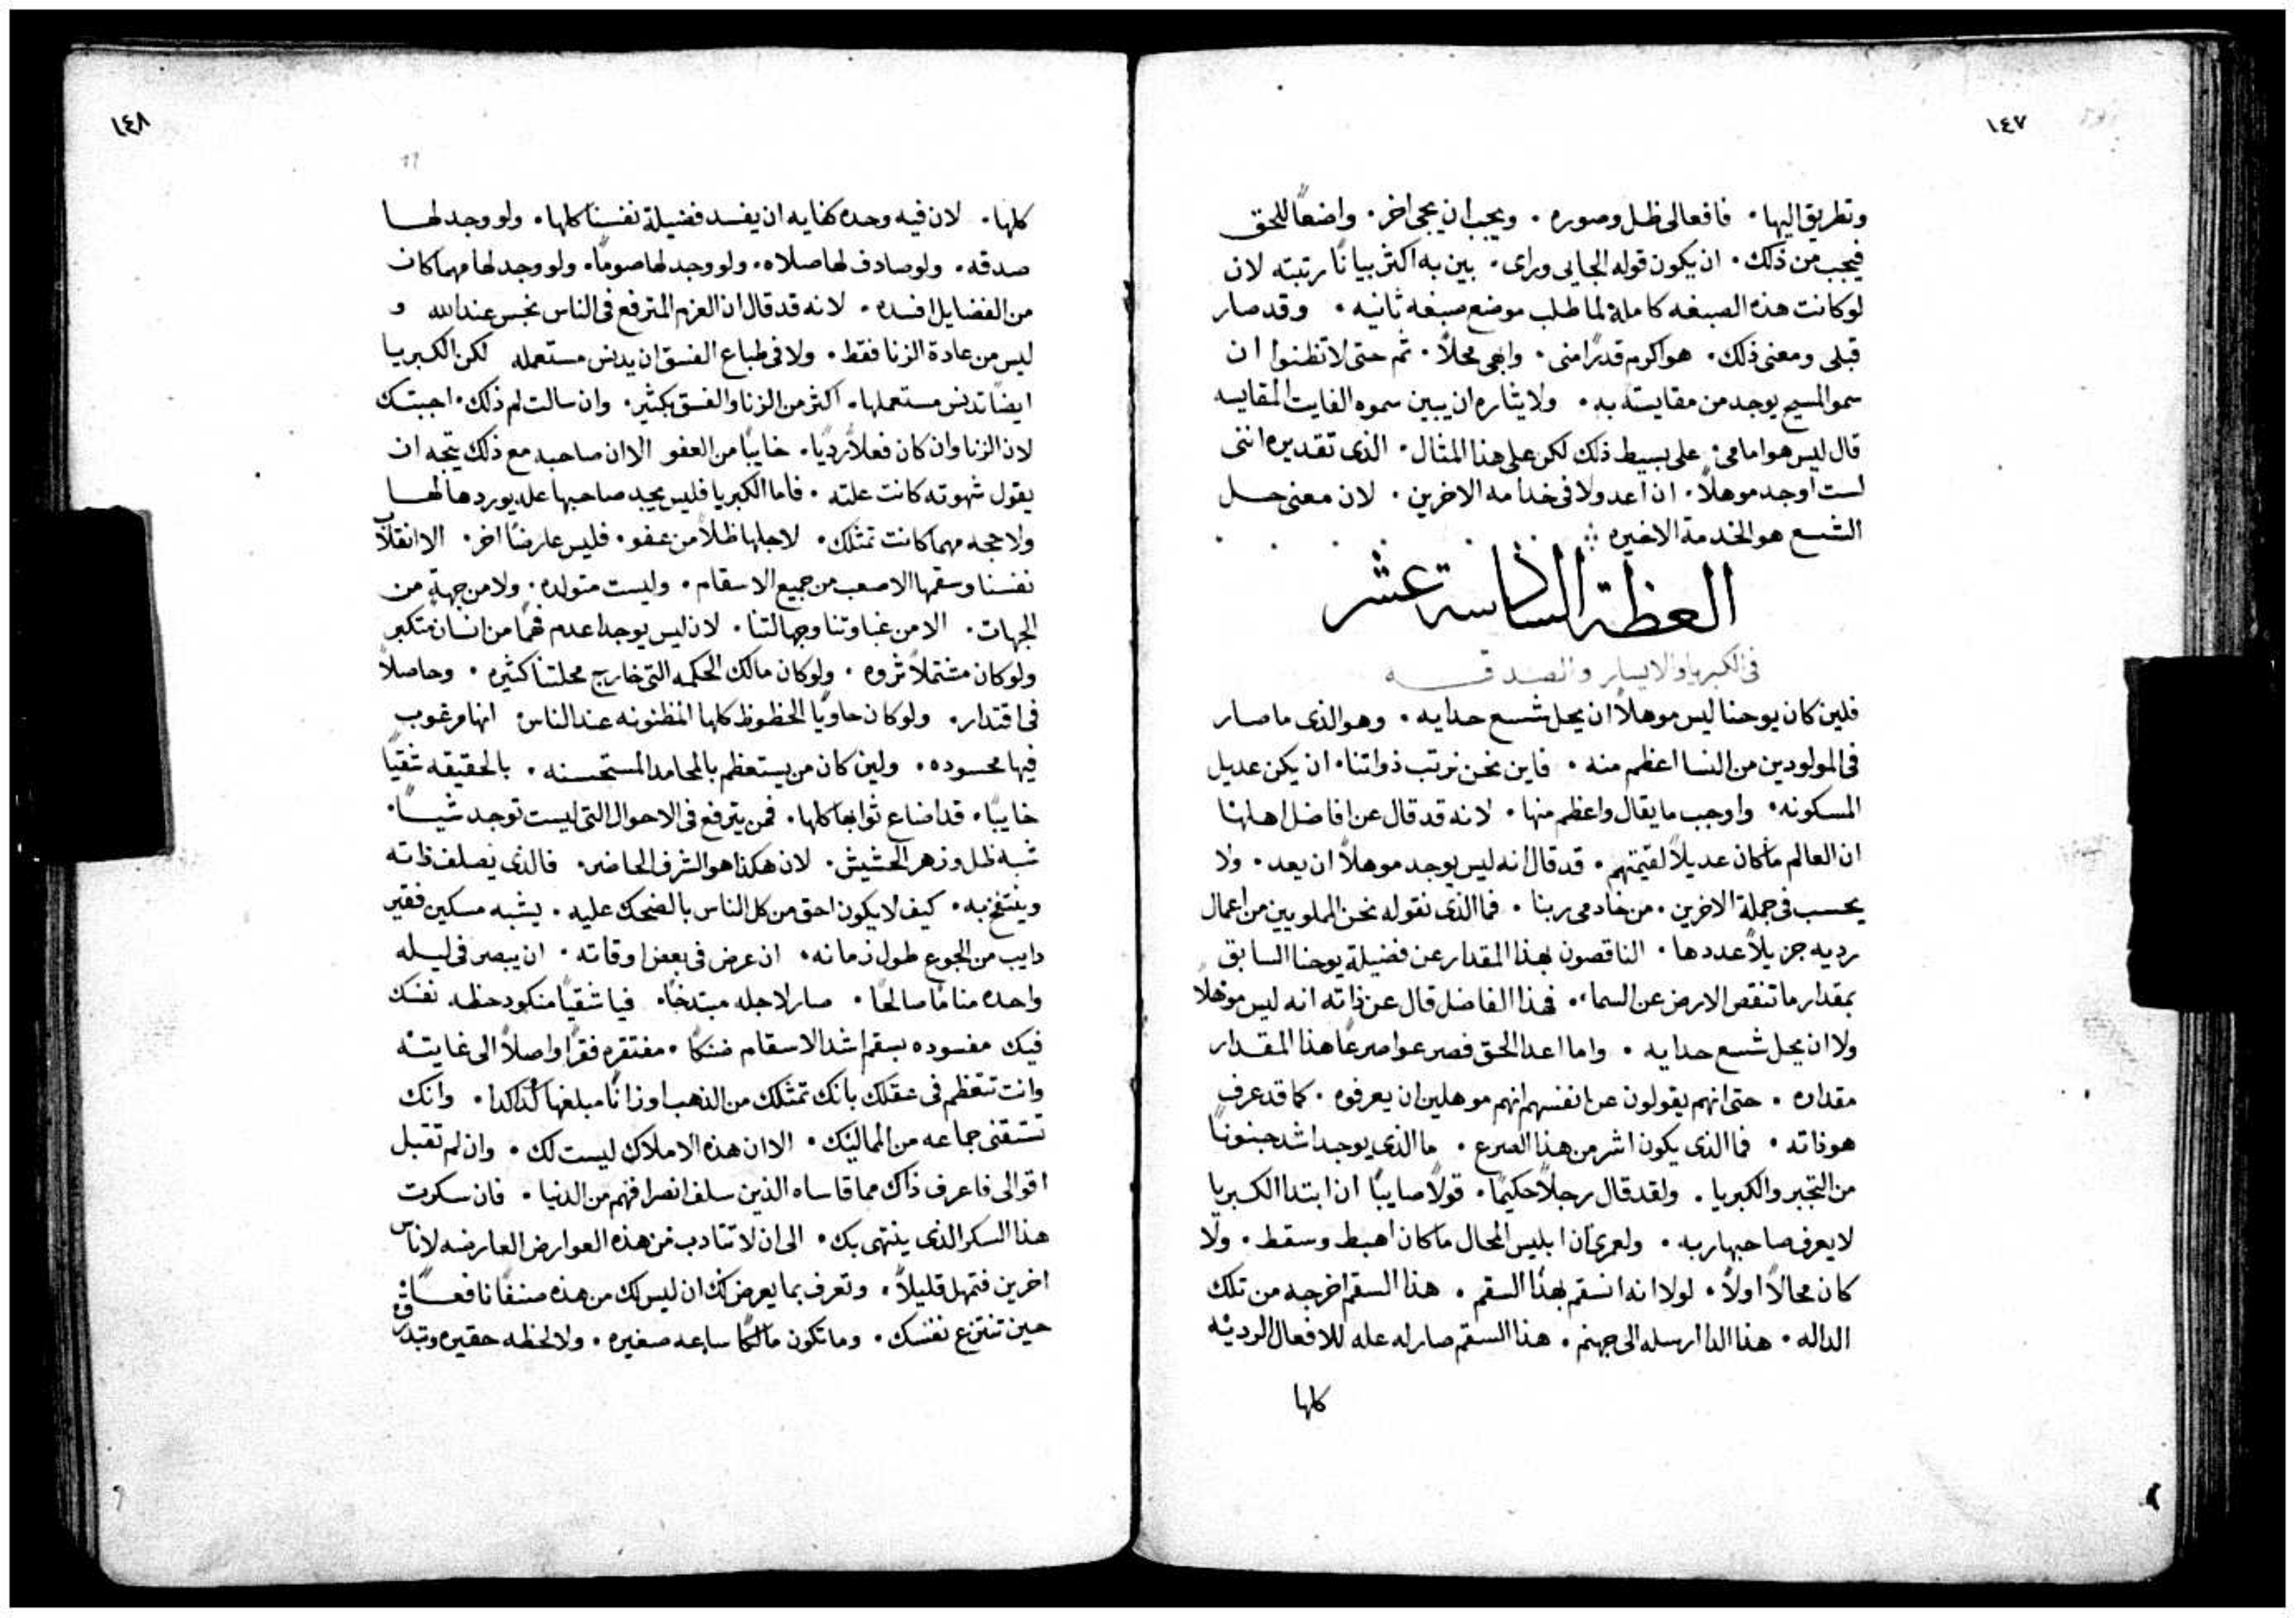 ١٤٧
وتطريق اليها . فافعالى ظل وصوره . ويجب ان يجى اخر . واضعًا للحق
فيجب من ذلك . ان يكون قوله الجايى وراى . بين به اكثر بيانًا رتبته لان
لو كانت هذه الصبغه كاملة لما طلب موضع صبغه ثانيه . وقد صار
قبلى ومعنى ذلك . هو اكرم قدرًا منى . وابهى محلاً . ثم حتى لا تظنوا ان
سمو المسيح يوجد من مقايسته به . ولايثاره ان يبين سموه الفايت المقايسه
قال ليس هو امامى . على بسيط ذلك لكن على هذا المثال . الذى تقديره اننى
لست اوجد موهلاً . ان اعد ولا فى خدامه الاخرين . لان معنى حل
الشسع هو الخدمة الاخيره
العظة السادسة عشر
فى الكبريا والايسار والصدقه
فلين كان يوحنا ليس موهلاً ان يحل شسع حدايه . وهو الذى ما صار
فى المولودين من النسا اعظم منه . فاين نحن نرتب ذواتنا . ان يكن عديل
المسكونه . واوجب ما يقال واعظم منها . لانه قد قال عن افاضل اهلها
ان العالم ما كان عديلاً لقيمتهم . قد قال انه ليس يوجد موهلاً ان يعد . ولا
يحسب فى جملة الاخرين . من خادمى ربنا . فما الذى نقوله نحن المملويين من اعمال
رديه جزيلاً عددها . الناقصون بهذا المقدار عن فضيلة يوحنا السابق
بمقدار ما تنقص الارض عن السماء . فهذا الفاضل قال عن ذاته انه ليس موهلاً
ولا ان يحل شسع حدايه . واما اعدا الحق فصرعوا صرعًا هذا المقدار
مقداره . حتى انهم يقولون عن انفسهم انهم موهلين ان يعرفوه . كما قد عرف
هو ذاته . فما الذى يكون اشر من هذا الصرع . ما الذى يوجد اشد جنونًا
من التجبر والكبريا . ولقد قال رجلاً حكيمًا . قولاً صايبًا ان ابتدا الكبريا
لا يعرف صاحبها ربه . ولعمرى ان ابليس المحال ما كان اهبط وسقط . ولا
كان محالاً اولاً . لولا انه انسقم بهذا السقم . هذا السقم اخرجه من تلك
الداله . هذا الدا ارسله الى جهنم . هذا السقم صار له عله للافعال الرديه
كلها
١٤٨
كلها . لان فيه وحده كفايه ان يفسد فضيلة نفسنا كلها . ولو وجد لها
صدقه . ولو صادف لها صلاه . ولو وجد لها صومًا . ولو وجد لها مهما كان
من الفضايل افسده . لانه قد قال ان العزم المترفع فى الناس نجس عند الله و
ليس من عادة الزنا فقط . ولا فى طباع الفسق ان يدنس مستعمله لكن الكبريا
ايضًا تدنس مستعملها . اكثر من الزنا والفسق بكثير . وان سالت لم ذلك . اجبتك
لان الزنا وان كان فعلاً رديًا . خايبًا من العفو الا ان صاحبه مع ذلك يتجه ان
يقول شهوته كانت علته . فاما الكبريا فليس يجد صاحبها عله يوردها لها
ولا حجه مهما كانت تمتلك . لاجلها ظلاً من عفو . فليس عارضًا اخر . الا انقلاب
نفسنا وسقمها الاصعب من جميع الاسقام . وليست متولده . ولا من جهة من
الجهات . الا من غباوتنا وجهالتنا . لان ليس يوجد اعدم فهمًا من انسان متكبر
ولو كان مشتملاً ثروه . ولو كان مالك الحكمه التى خارج محلتنا كثيره . وحاصلاً
فى اقتدار . ولو كان حاويًا الحظوظ كلها المظنونه عند الناس انها مرغوب
فيها محسوده . ولين كان من يستعظم بالمحامد المستحسنه . بالحقيقه شقيًا
خايبًا . قد اضاع ثوابها كلها . فمن يترفع فى الاحوال التى ليست توجد شيًا .
شبه ظل وزهر الحشيش . لان هكذا هو الشرف الحاضر . فالذى يصلف ذاته
وينتفخ به . كيف لا يكون احق من كل الناس بالضحك عليه . يشبه مسكين فقير
دايب من الجوع طول زمانه . ان عرض فى بعض اوقاته . ان يبصر فى ليله
واحده منامًا صالحًا . صار لاجله مبتدخًا . فيا شقيًا منكود حظه نفسك
فيك مفسوده بسقم اشد الاسقام ضنكًا . مفتقره فقرًا واصلاً الى غايته
وانت تتعظم فى عقلك بانك تمتلك من الذهب اوزانًا مبلغها كذا كذا . وانك
تستقنى جماعه من المماليك . الا ان هذه الاملاك ليست لك . وان لم تقبل
اقوالى فاعرف ذاك مما قاساه الذين سلف انصرافهم من الدنيا . فان سكرت
هذا السكر الذى ينتهى بك . الى ان لا تتادب من هذه العوارض العارضه لاناس
اخرين فتمهل قليلاً . وتعرف بما يعرض لك ان ليس لك من هذه صنفًا نافعًا
حين تنتزع نفسك . وما تكون مالكًا ساعه صغيره . ولا لحظه حقيره